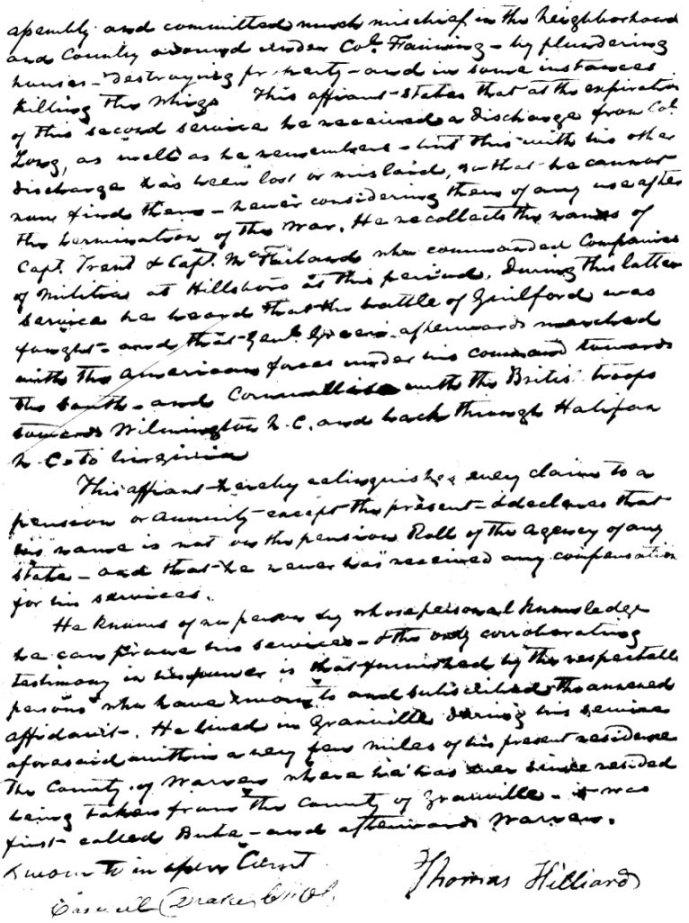 assembly and committed much mischief in the neighborhood
and County around under Col. Fanning - by plundering
houses - destroying property - and in some instances
killing the Whigs This affiant states that at the expiration
of this second service he received a discharge from Col.
Long, as well as he remembers - but this with his other
discharge has been lost or mislaid, so that he cannot
now find them - never considering them of any use after
the termination of the War. He recollects the names of
Capt. Trent & Capt. McFarland who commanded Companies
of Militia at Hillsboro at this period. During this latter
service he heard that the battle of Guilford was
fought - and that Genl. Green afterwards marched
with the American forces under his command towards
the South - and Cornwallis with the Britis troops
towards Wilmington N.C. and back through Halifax
N.C. to Virginia
This affiant hereby relinquishes every claim to a
pension or annuity except the present - & declares that
his name is not on the pension Roll of the Agency of any
state - and that he never has received any compensation
for his services.
He knows of no person by whose personal knowledge
he can prove his services - & the only corroborating
testimony in his power is that furnished by the respectable
persons who have sworn to and subscribed the annexed
affidavit. He lived in Granville during his service
aforesaid within a very few miles of his present residence
The County of Warren where he has ever since resided
being taken from the County of Granville - it was
first called Bute - and afterwards Warren.
Sworn to in open Court
Thomas Hilliard
Caswell Drake